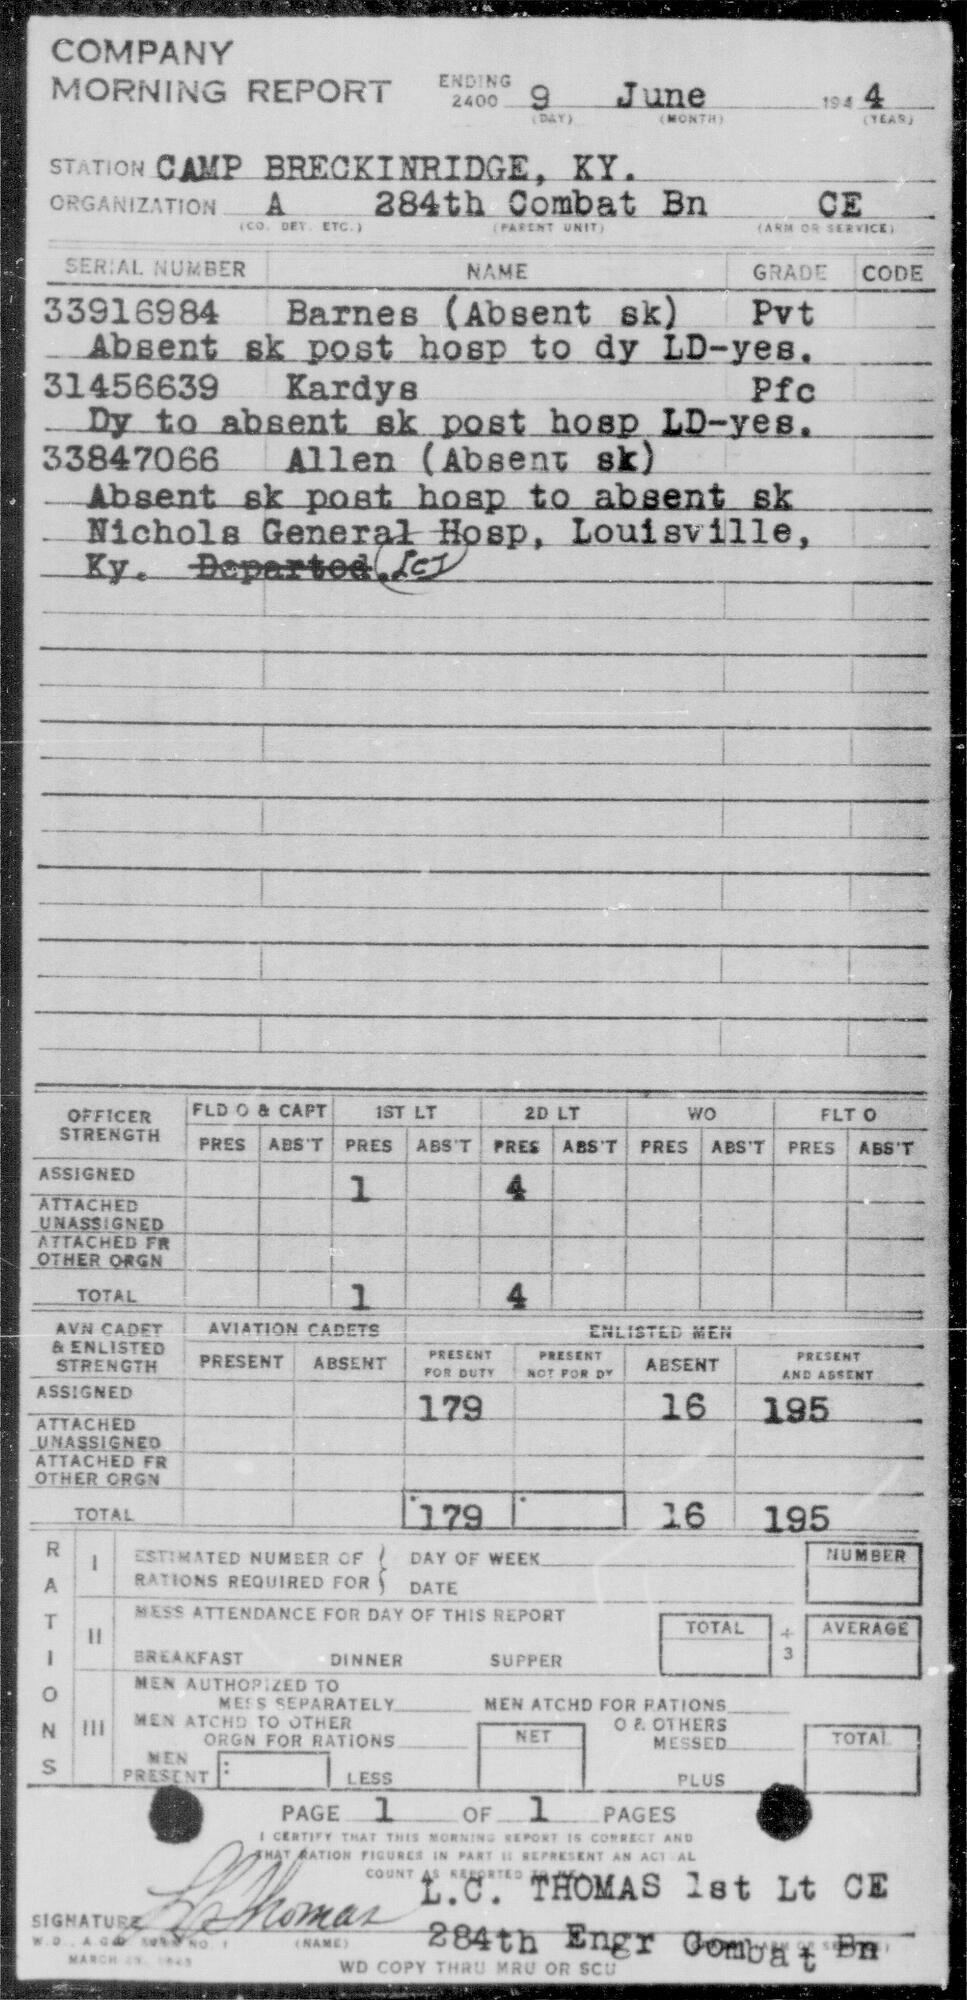 COMPANY
MORNING REPORT ENDING 2400 9 June 1944
(DAY) (MONTH) (YEAR)
STATION CAMP BRECKINRIDGE, KY.
ORGANIZATION A 284th Combat Bn CE
(CO. DET. ETC.) (PARENT UNIT) (ARM OR SERVICE)
SERIAL NUMBER NAME GRADE CODE
33916984 Barnes (Absent sk) Pvt
Absent sk post hosp to dy LD-yes.
31456639 Kardys Pfc
Dy to absent sk post hosp LD-yes.
33847066 Allen (Absent sk)
Absent sk post hosp to absent sk
Nichols General Hosp, Louisville,
Ky. Departed.
OFFICER STRENGTH FLD O & CAPT 1ST LT 2D LT WO FLT O
PRES ABS'T PRES ABS'T PRES ABS'T PRES ABS'T PRES ABS'T
ASSIGNED 1 4
ATTACHED UNASSIGNED
ATTACHED FR OTHER ORGN
TOTAL 1 4
AVN CADET & ENLISTED STRENGTH AVIATION CADETS ENLISTED MEN
PRESENT ABSENT PRESENT FOR DUTY PRESENT NOT FOR DY ABSENT PRESENT AND ABSENT
ASSIGNED 179 16 195
ATTACHED UNASSIGNED
ATTACHED FR OTHER ORGN
TOTAL 179 16 195
RATIONS
I ESTIMATED NUMBER OF RATIONS REQUIRED FOR DAY OF WEEK DATE NUMBER
II MESS ATTENDANCE FOR DAY OF THIS REPORT TOTAL ÷ 3 AVERAGE
BREAKFAST DINNER SUPPER
III MEN AUTHORIZED TO MESS SEPARATELY MEN ATCHD FOR RATIONS
MEN ATCHD TO OTHER ORGN FOR RATIONS NET O & OTHERS MESSED TOTAL
MEN PRESENT : LESS PLUS
PAGE 1 OF 1 PAGES
I CERTIFY THAT THIS MORNING REPORT IS CORRECT AND
THAT RATION FIGURES IN PART II REPRESENT AN ACTUAL
COUNT AS REPORTED TO ME
L.C. THOMAS 1st Lt CE
SIGNATURE L C Thomas
284th Engr Combat Bn
W.D., A.G.O. FORM NO. 1 (NAME)
MARCH 1943
WD COPY THRU MRU OR SCU